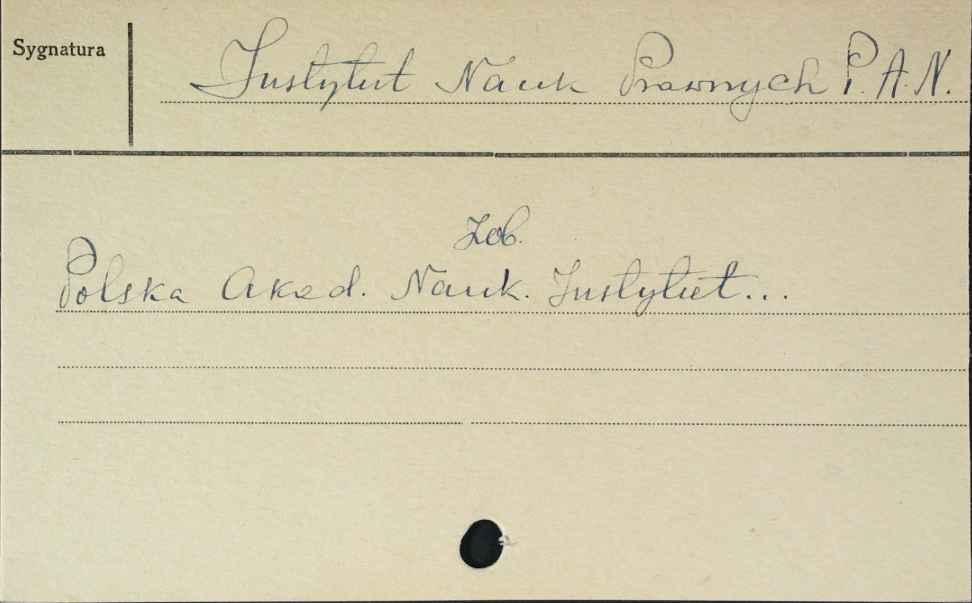 Sygnatura
Instytut Nauk Prawnych P.A.N.
Zob.
Polska Akad. Nauk. Instytut...